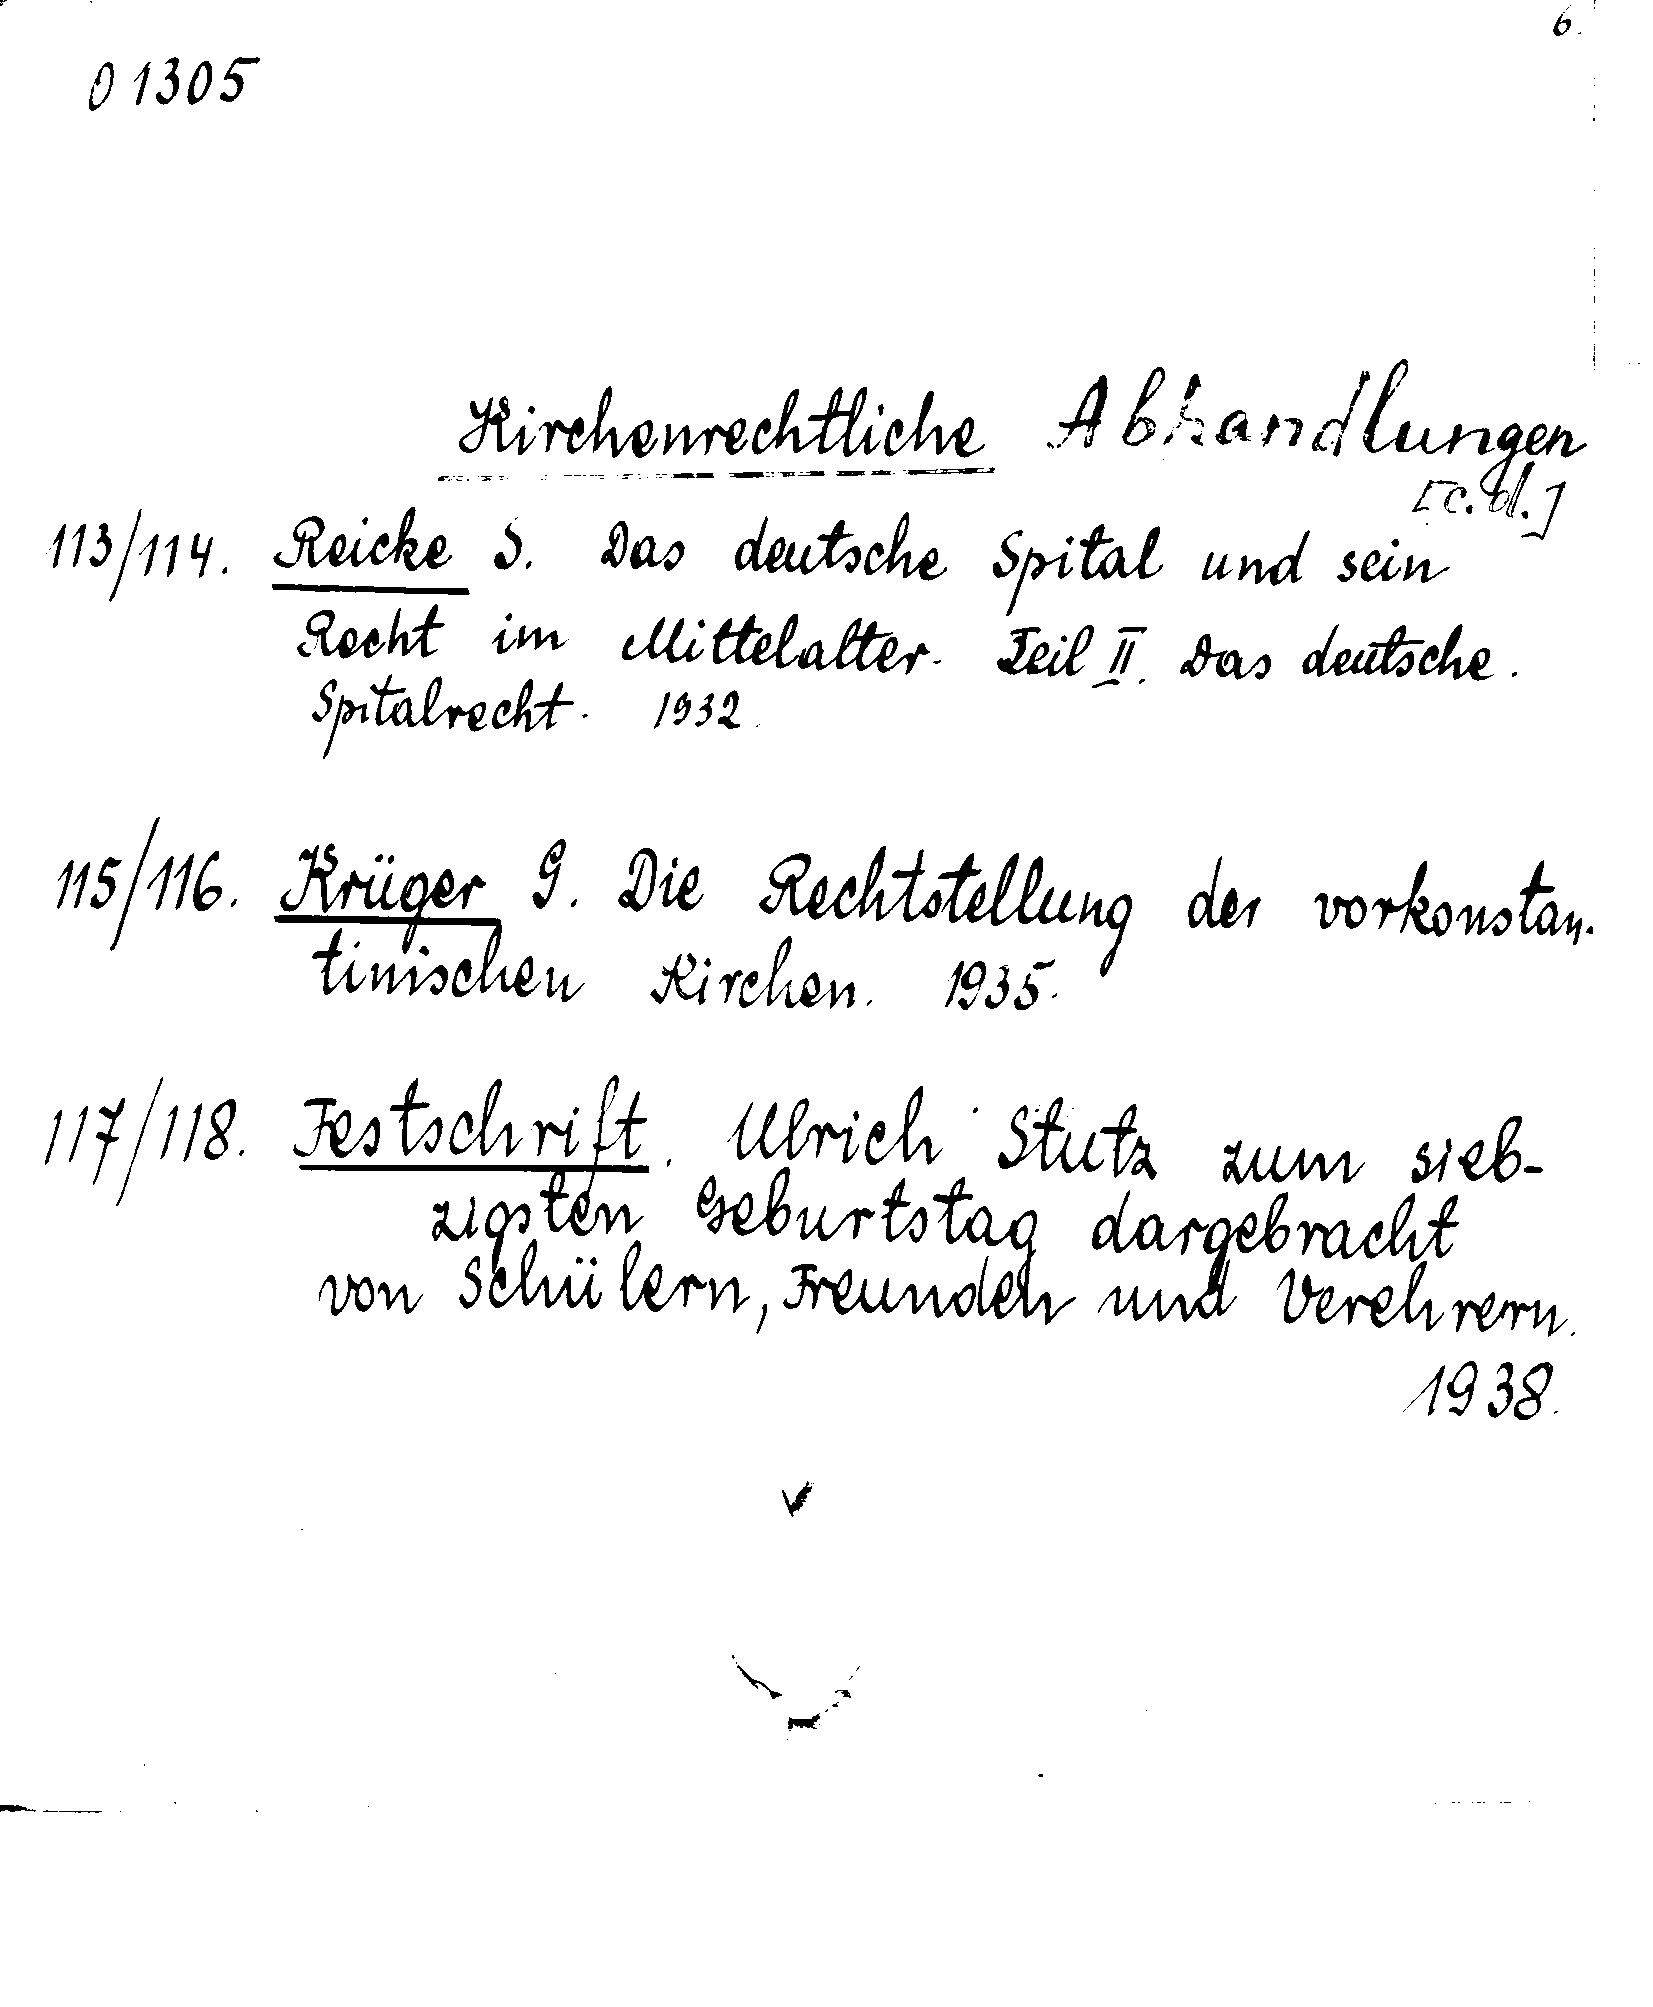 6.
O 1305
Kirchenrechtliche Abhandlungen
[c.d.]
113/114. Reicke S. Das deutsche Spital und sein
Recht im Mittelalter. Teil II. Das deutsche.
Spitalrecht. 1932.
115/116. Krüger G. Die Rechtstellung der vorkonstan-
tinischen Kirchen. 1935.
117/118. Festschrift. Ulrich Stutz zum sieb-
zigsten Geburtstag dargebracht
von Schülern, Freunden und Verehrern.
1938.